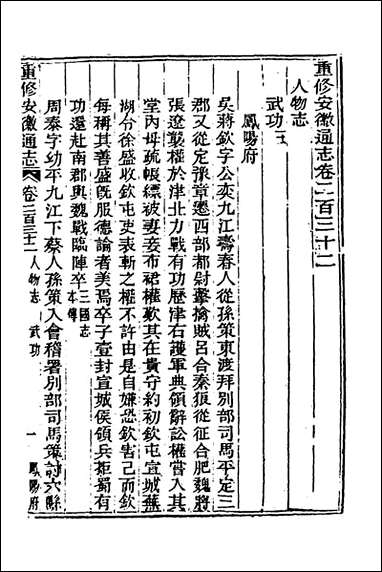 重修安徽通志卷二百三十二
人物志
武功二
鳳陽府
吳蔣欽字公奕九江壽春人從孫策東渡拜別部司馬平定三
郡又從定豫章遷西部都尉擊擒賊呂合秦狼從征合肥魏將
張遼襲權於津北力戰有功歷津右護軍典領辭訟權嘗入其
堂內母疏帳縹被妻妾布裙權歎其在貴守約初欽屯宣城蕪
湖令徐盛收欽屯吏表斬之權不許由是自嫌恐欽害己而欽
每稱其善盛旣服德論者美焉卒子壹封宣城侯領兵拒蜀有
功還赴南郡與魏戰臨陣卒三國志本傳
周泰字幼平九江下蔡人孫策入會稽署別部司馬策討六縣
重修安徽通志 卷二百三十二 人物志 武功 一 鳳陽府